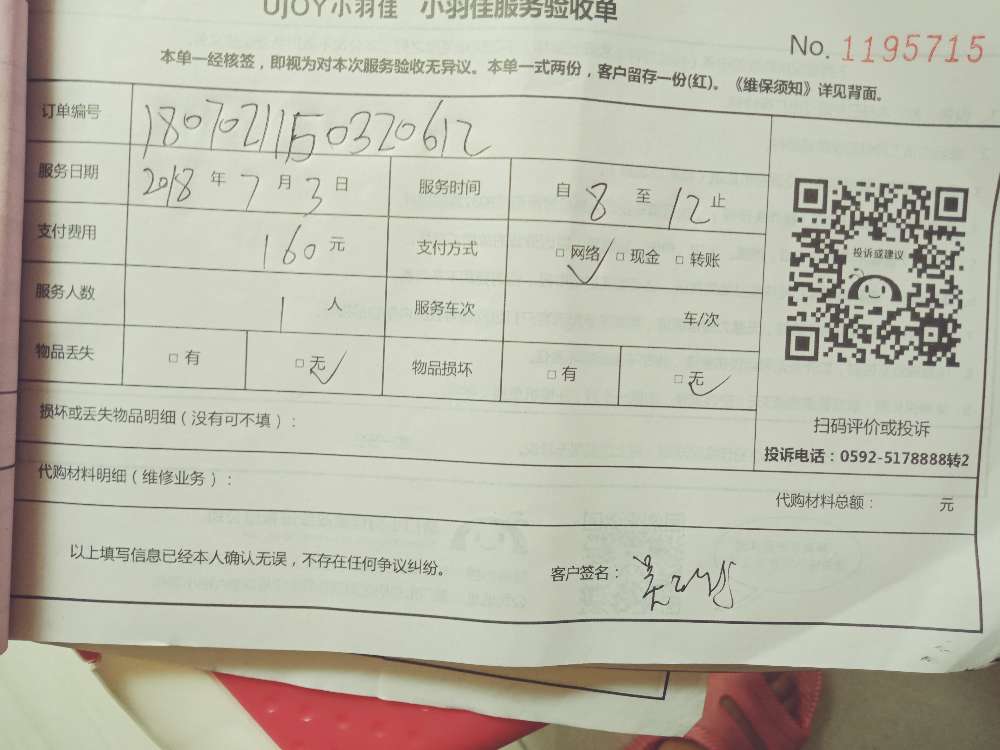 UJOY小羽佳 小羽佳服务验收单
No. 1195715
本单一经核签，即视为对本次服务验收无异议。本单一式两份，客户留存一份(红)。《维保须知》详见背面。
订单编号 1807021150320612
服务日期 2018 年 7 月 3 日 服务时间 自 8 至 12 止
支付费用 160 元 支付方式 □ 网络 □ 现金 □ 转账
服务人数 1 人 服务车次 车/次
物品丢失 □ 有 □ 无 物品损坏 □ 有 □ 无
投诉或建议
扫码评价或投诉
投诉电话：0592-5178888转2
损坏或丢失物品明细（没有可不填）：
代购材料明细（维修业务）：
代购材料总额： 元
以上填写信息已经本人确认无误，不存在任何争议纠纷。
客户签名：